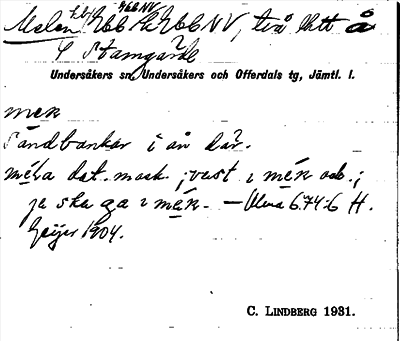 Melen hb/ 7Gb HaGbb NV, två slått å
S Stamgärde
Undersåkers sn, Undersåkers och Offerdals tg, Jämtl. l.
mek
Sandbankar i ån där.
méla dat. mask. ; vast i mék och ;
ja ska ga i mék. — Ulma 674:6 H.
Geijer 1904.
C. LINDBERG 1931.